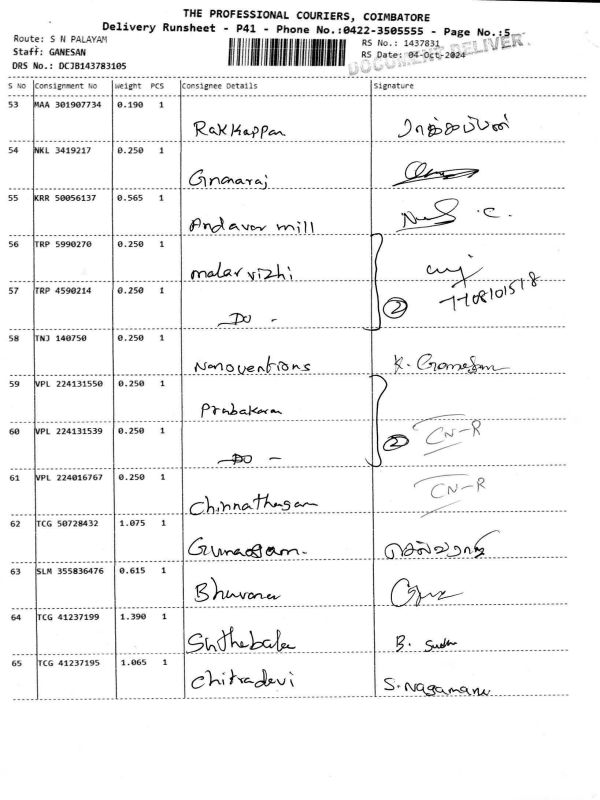 THE PROFESSIONAL COURIERS, COIMBATORE
Delivery Runsheet - P41 - Phone No.:0422-3505555 - Page No.:5
Route: S N PALAYAM
RS No.: 1437831
Staff: GANESAN
RS Date: 04-Oct-2024
DRS No.: DCJB143783105
S No Consignment No Weight PCS Consignee Details Signature
53 MAA 301907734 0.190 1
Rakkappan ராக்கப்பன்
54 NKL 3419217 0.250 1
Gnanaraj
55 KRR 50056137 0.565 1
Andavar mill
56 TRP 5990270 0.250 1
malar vizhi
57 TRP 4590214 0.250 1
7708101518
DO - 2
58 TNJ 140750 0.250 1
Nanoventions
59 VPL 224131550 0.250 1
Prabakaran
60 VPL 224131539 0.250 1
2 CN-R
DO -
61 VPL 224016767 0.250 1
CN-R
Chinnathagam
62 TCG 50728432 1.075 1
63 SLM 355836476 0.615 1
Bhuvana
64 TCG 41237199 1.390 1
B. Sudha
65 TCG 41237195 1.065 1
Chitradevi S. Nagamani